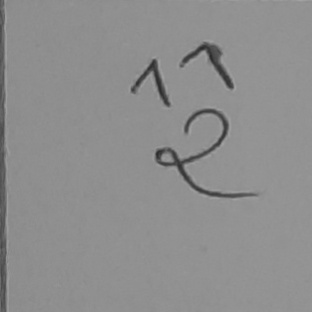 11
2